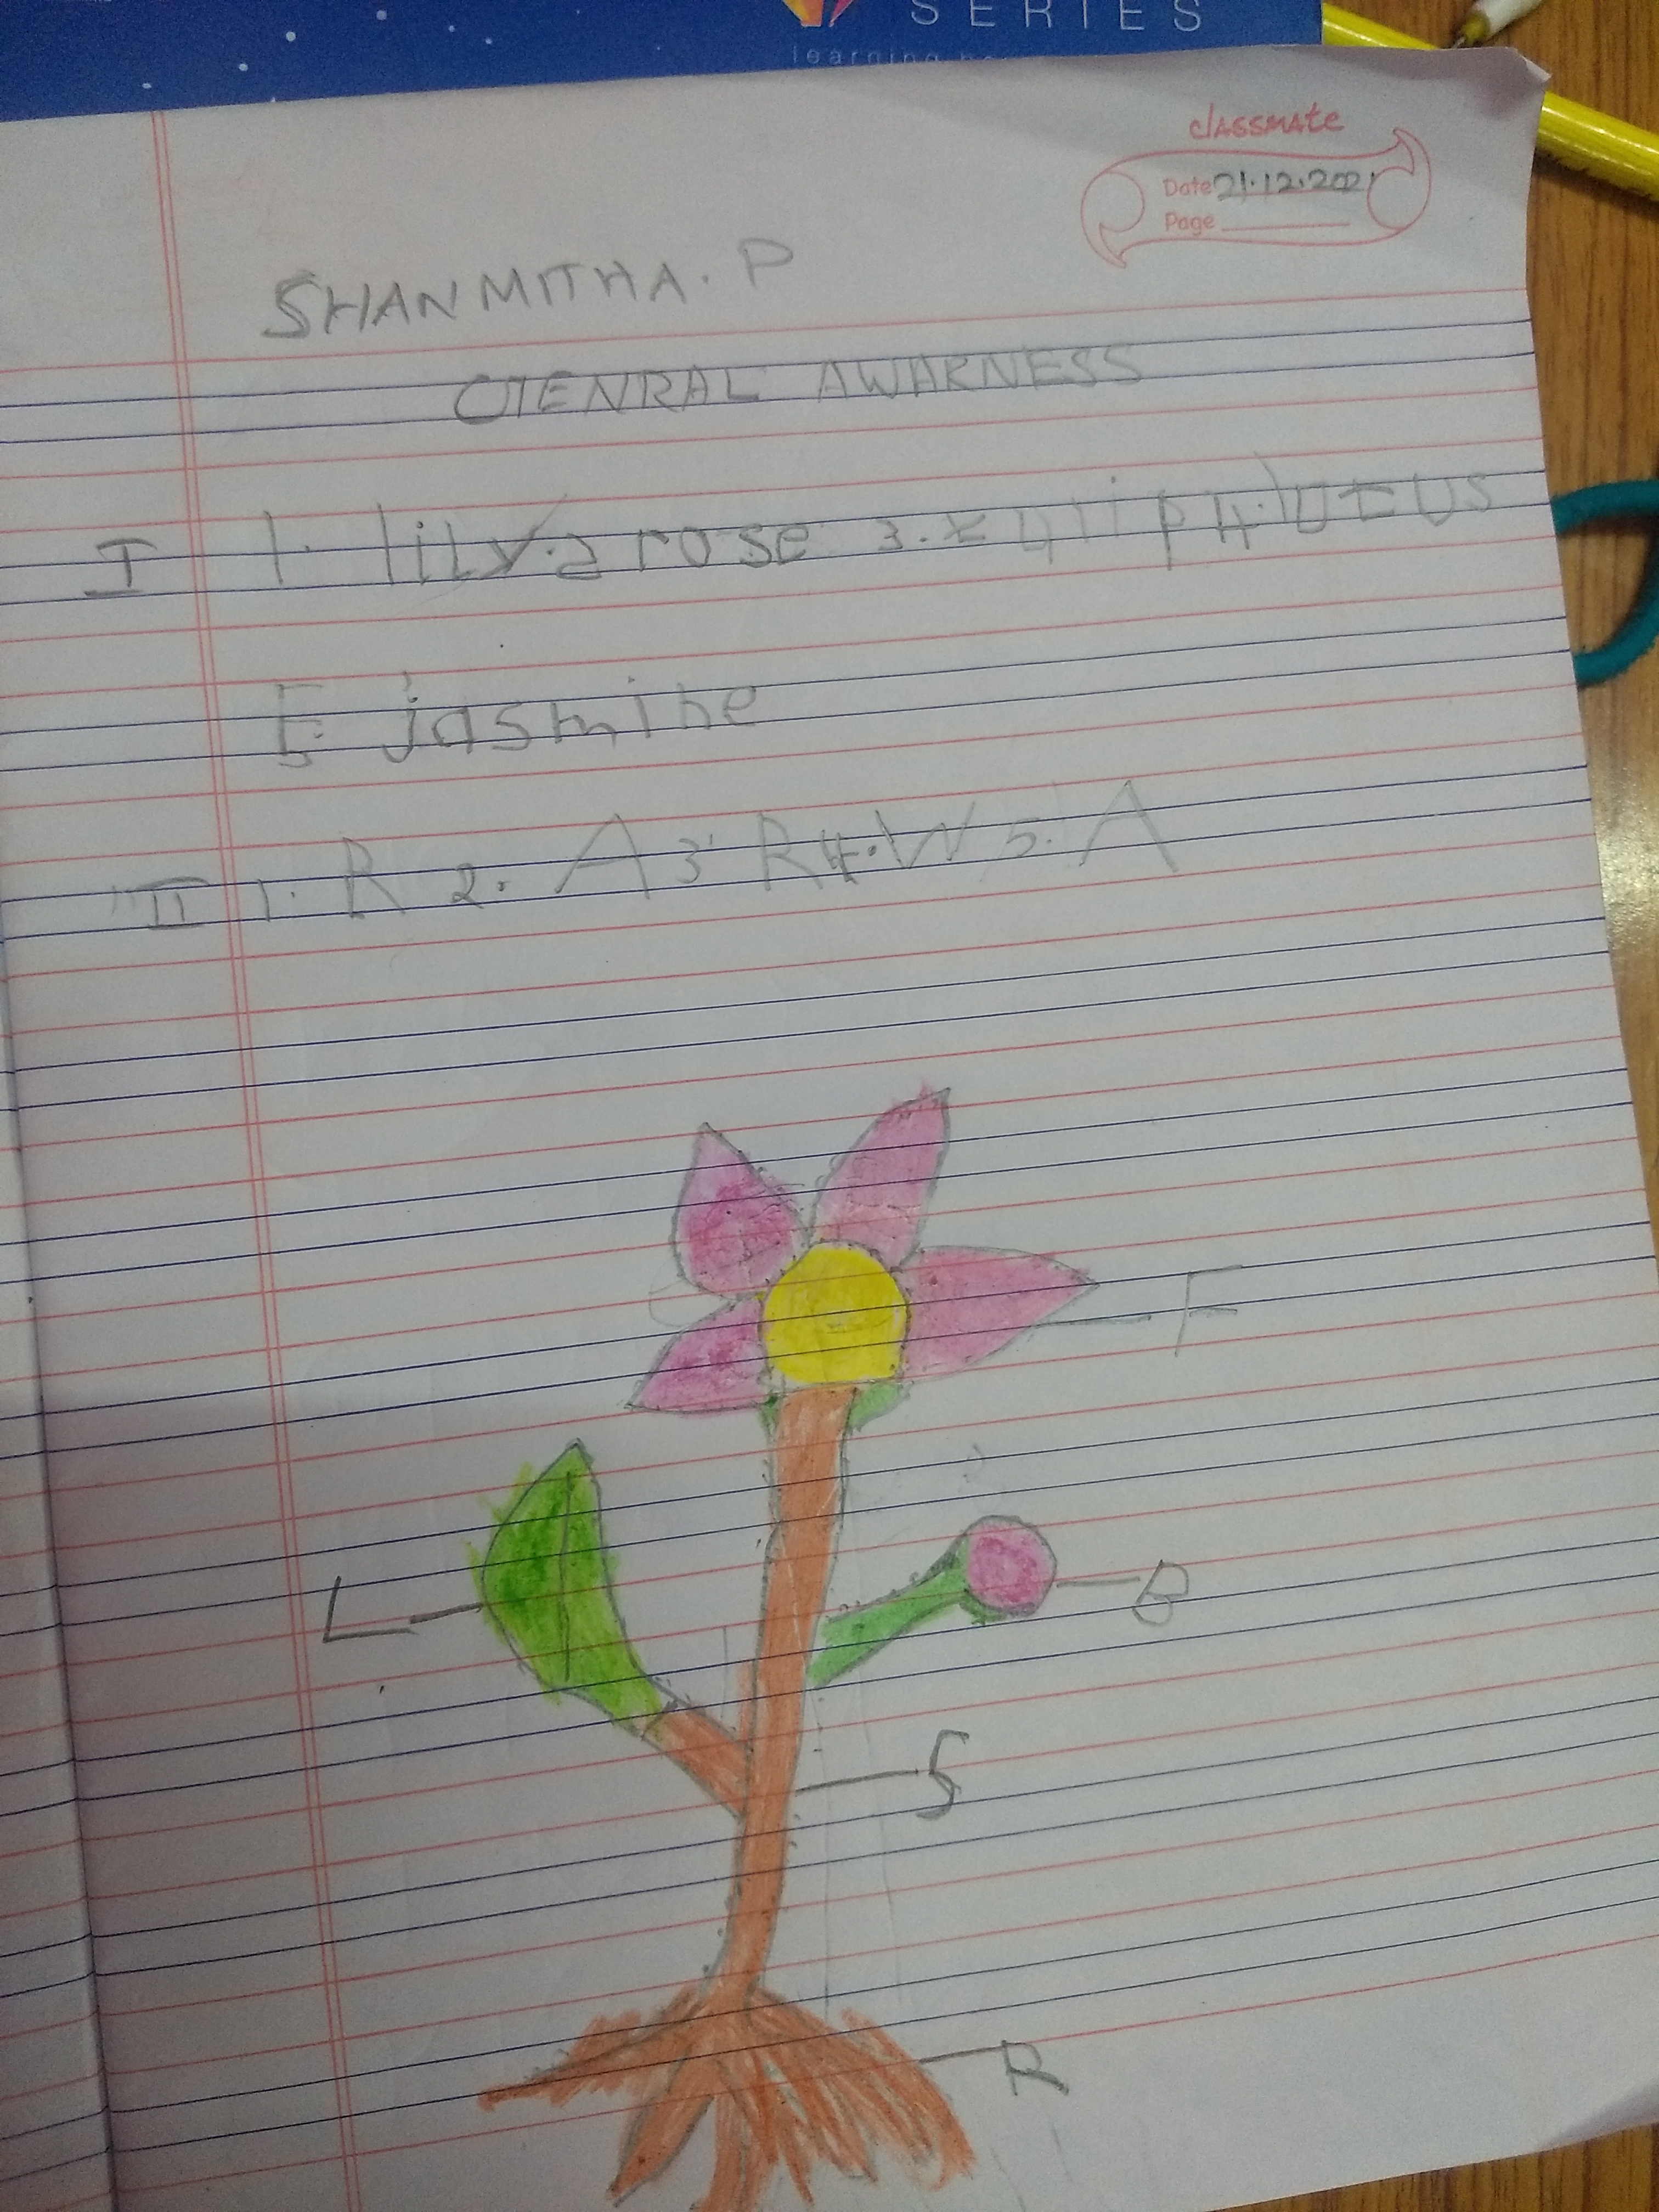 SERIES
learning
classmate
Date 21.12.2021
Page
SHANMITHA. P
GENRAL AWARNESS
I 1. lily 2 rose 3. 4. lotus
5. jasmine
II 1. R 2. A 3. R 4. W 5. A
F
L
B
S
R